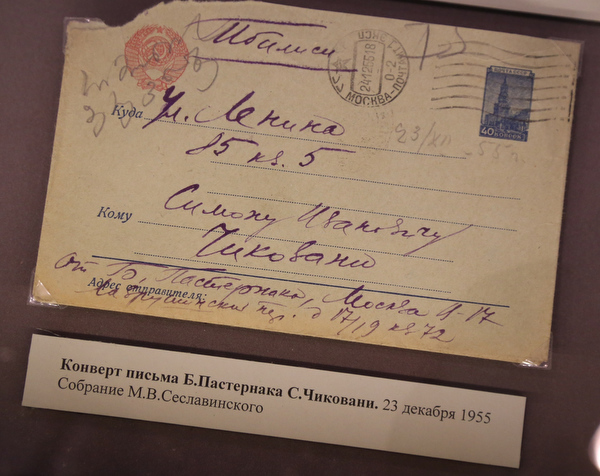 Тбилиси
МОСКВА-ПОЧТАМТ
24125518
ПОЧТА СССР
40
Куда Ул. Ленина
23/XII - 55 г.
85 кв. 5
Кому Симону Ивановичу
Чиковани
От Б. Пастернака, Москва В-17
Адрес отправителя:
Лаврушинский пер. д 17/19 кв 72
Конверт письма Б.Пастернака С.Чиковани. 23 декабря 1955
Собрание М.В.Сеславинского